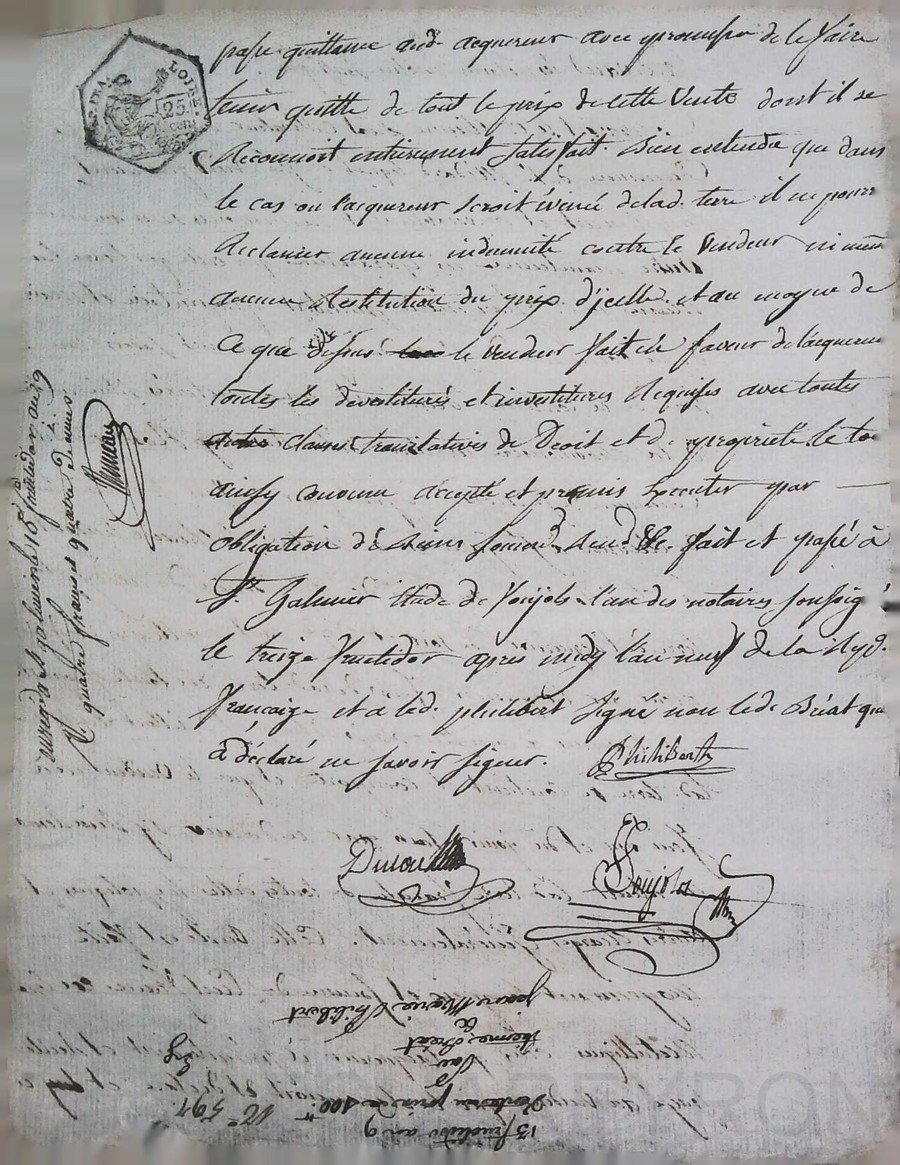 passe quittance aud. acquereur avec promesse de le faire
tenir quitte de tout le prix de cette Vente dont il se
Reconnoit entierement satisfait. Bien entendu que dans
le cas ou l'acquereur seroit évincé delad. terre il ne pourra
Reclamer aucune indemnité contre le Vendeur ni même
aucune Restitution du prix d'jcelle. et au moyen de
Ce que dessus le Vendeur fait en faveur de l'acquereur
toutes les devestitures et investitures Requises avec toutes
autres clauses translatives de Droit et de propriété. le tout
ainsy convenu accepté et promis executer par
obligation de biens fait et passé à
St. Galmier Etude de Poujols l'un des notaires soussignés
le treize fructidor après midy l'an neuf de la Rep.
francaise et a led. philibert signé non led. Bréat qui
a déclaré ne savoir signer.
Philiberth
Poujols
enregistré à St galmier le 16 fructidor an 9
R. quatre francs quatre decimes
LOIRE
25
cen
13 fructidor an 9
Vente au prix de 100
par
Bréat
à
jean Marie Philibert